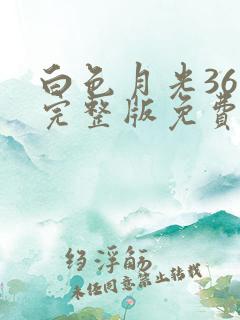 白色月光36
完整版免费
绉浮觞
未经同意禁止转载